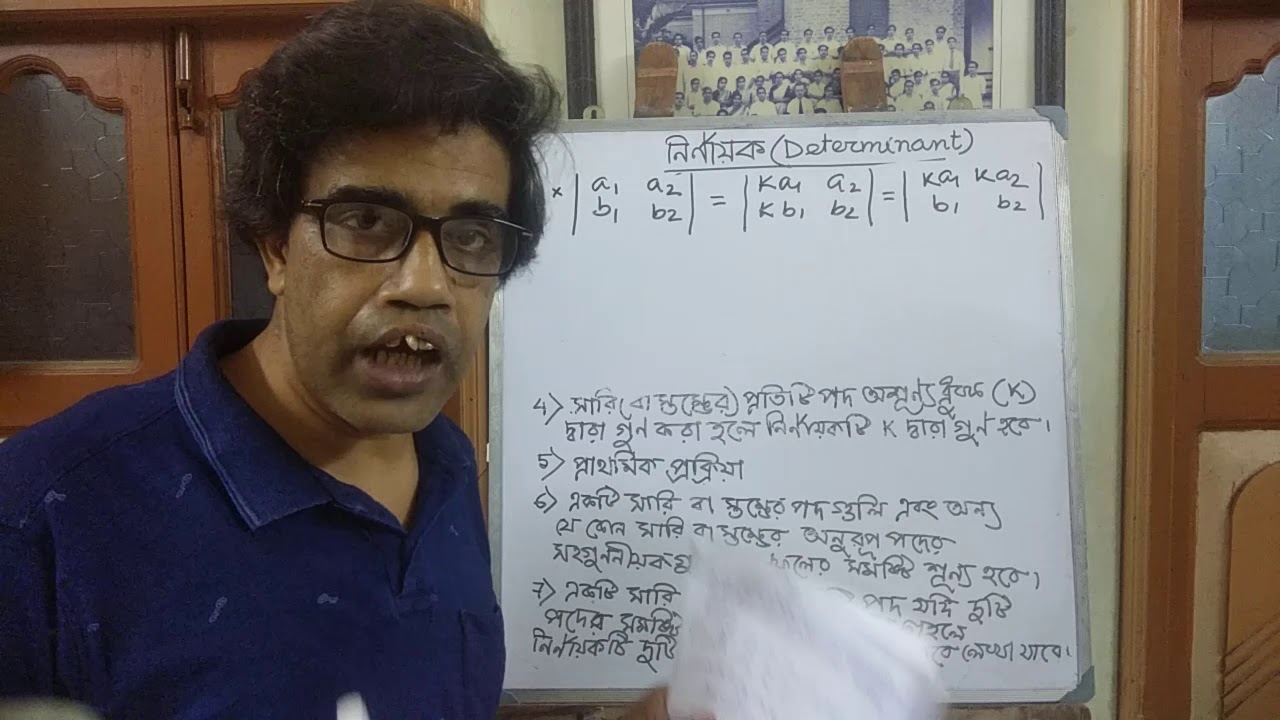 নির্ণায়ক (Determinant)
× | a₁ a₂ | = | Ka₁ a₂ | = | Ka₁ Ka₂ |
| b₁ b₂ | | Kb₁ b₂ | | b₁ b₂ |
4> সারি (বা স্তম্ভের) প্রতিটি পদ অশূন্য ধ্রুবক (K)
দ্বারা গুন করা হলে নির্ণায়কটি K দ্বারা গুন হবে।
5> প্রাথমিক প্রক্রিয়া
6> একটি সারি বা স্তম্ভের পদ গুলি এবং অন্য
যে কোন সারি বা স্তম্ভের অনুরূপ পদের
সহগুননীয়ক ফলের সমষ্টি শূন্য হবে।
7> একটি সারি পদ যদি দুটি
পদের সমষ্টি হলে
নির্ণায়কটি দুটি লেখা যাবে।